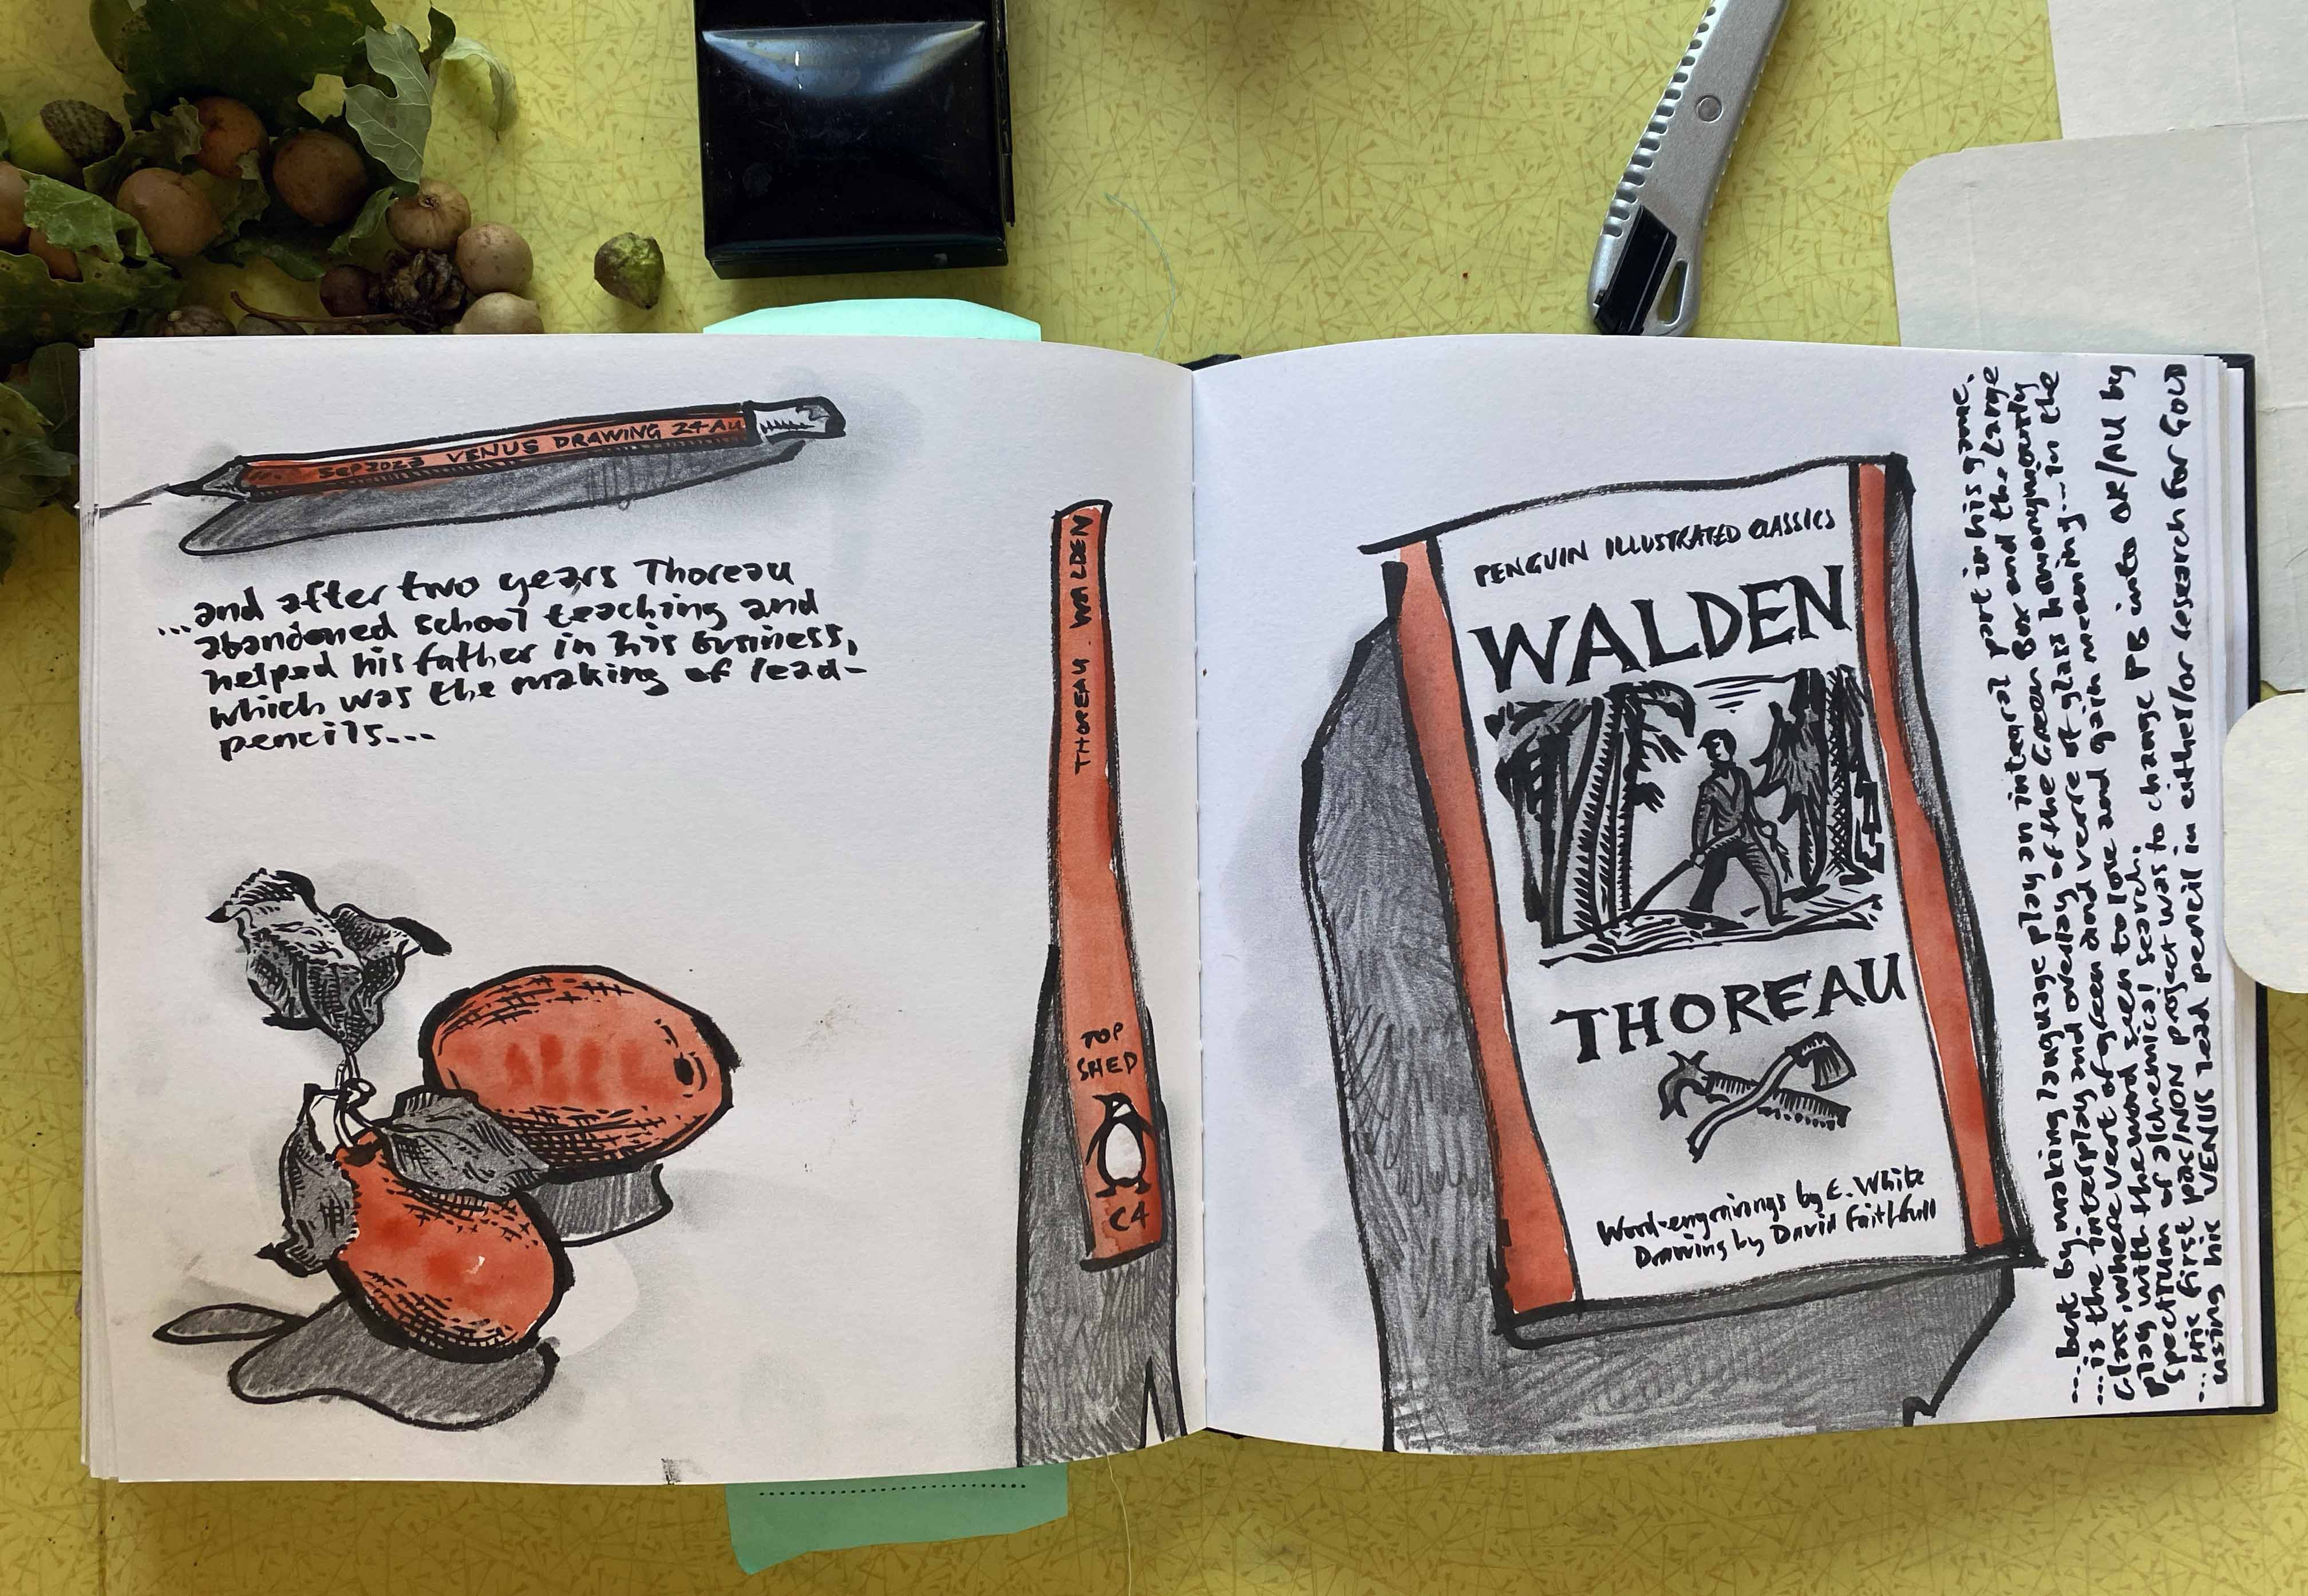 SEP 2023 VENUS DRAWING 24 AU
...and after two years Thoreau
abandoned school teaching and
helped his father in his business,
which was the making of lead-
pencils...
THOREAU . WALDEN
TOP
SHED
C4
PENGUIN ILLUSTRATED CLASSICS
WALDEN
THOREAU
Wood-engravings by E. White
Drawing by David Faithfull
...best by making language play an integral part in his game.
...is the interplay and overlay of the Green Box and the Large
Glass, where vert of green and verre of glass
play with the word seen to lose and gain meaning...in the
spectrum of alchemical search.
...His first pac/NON project was to change PB into OR/AU by
using his VENUS lead pencil in either/or research for GOLD